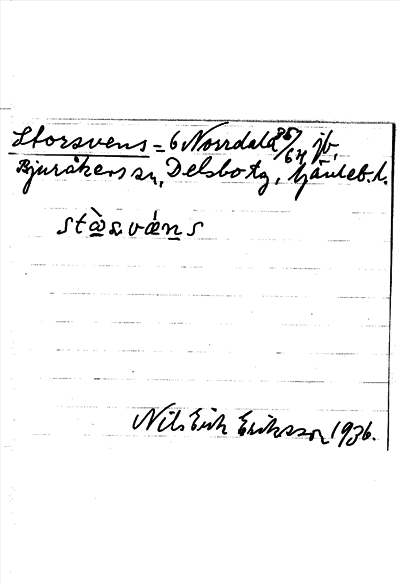 Storsvens = 6 Norrdala 85/64 jb.
Bjuråkers sn, Delsbo tg, Gävleb. l.
stàsváns
Nils Erik Eriksson 1936.